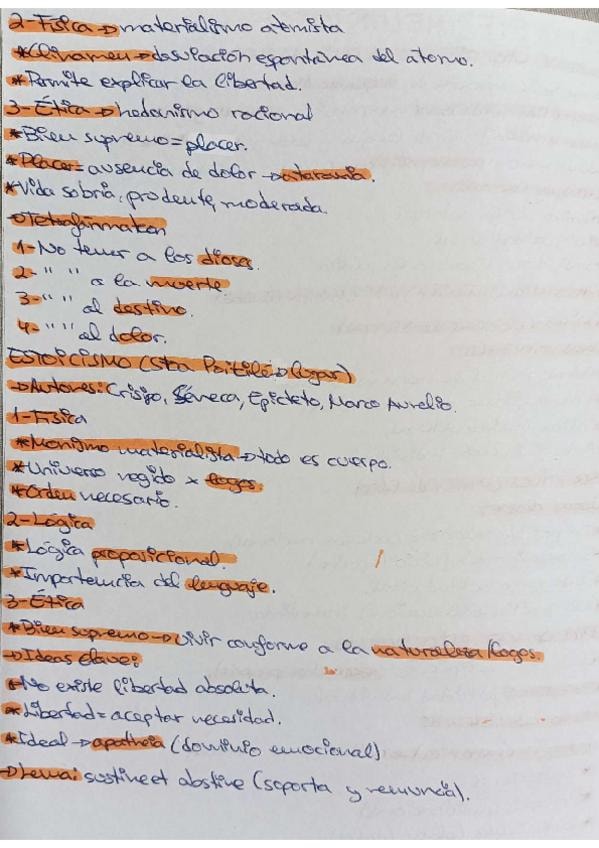 2-Física → materialismo atomista
*Clinamen → desviación espontánea del átomo.
*Permite explicar la libertad.
3-Ética → hedonismo racional
*Bien supremo = placer.
*Placer = ausencia de dolor → ataraxia.
*Vida sobria, prudente, moderada.
→ Tetrafármakon
1-No temer a los dioses.
2- " " a la muerte
3- " " al destino.
4- " " al dolor.
ESTOICISMO (Sta → lugar)
→ Autores: Crisipo, Séneca, Epicteto, Marco Aurelio.
1-Física
*Monismo materialista → todo es cuerpo.
*Universo regido x logos.
*Orden necesario.
2-Lógica
*Lógica proposicional.
*Importancia del lenguaje.
3-Ética
*Bien supremo → vivir conforme a la naturaleza/logos.
→ Ideas clave:
*No existe libertad absoluta.
*Libertad = aceptar necesidad.
*Ideal → apatheia (dominio emocional)
→ Lema: sustine et abstine (soporta y renuncia).